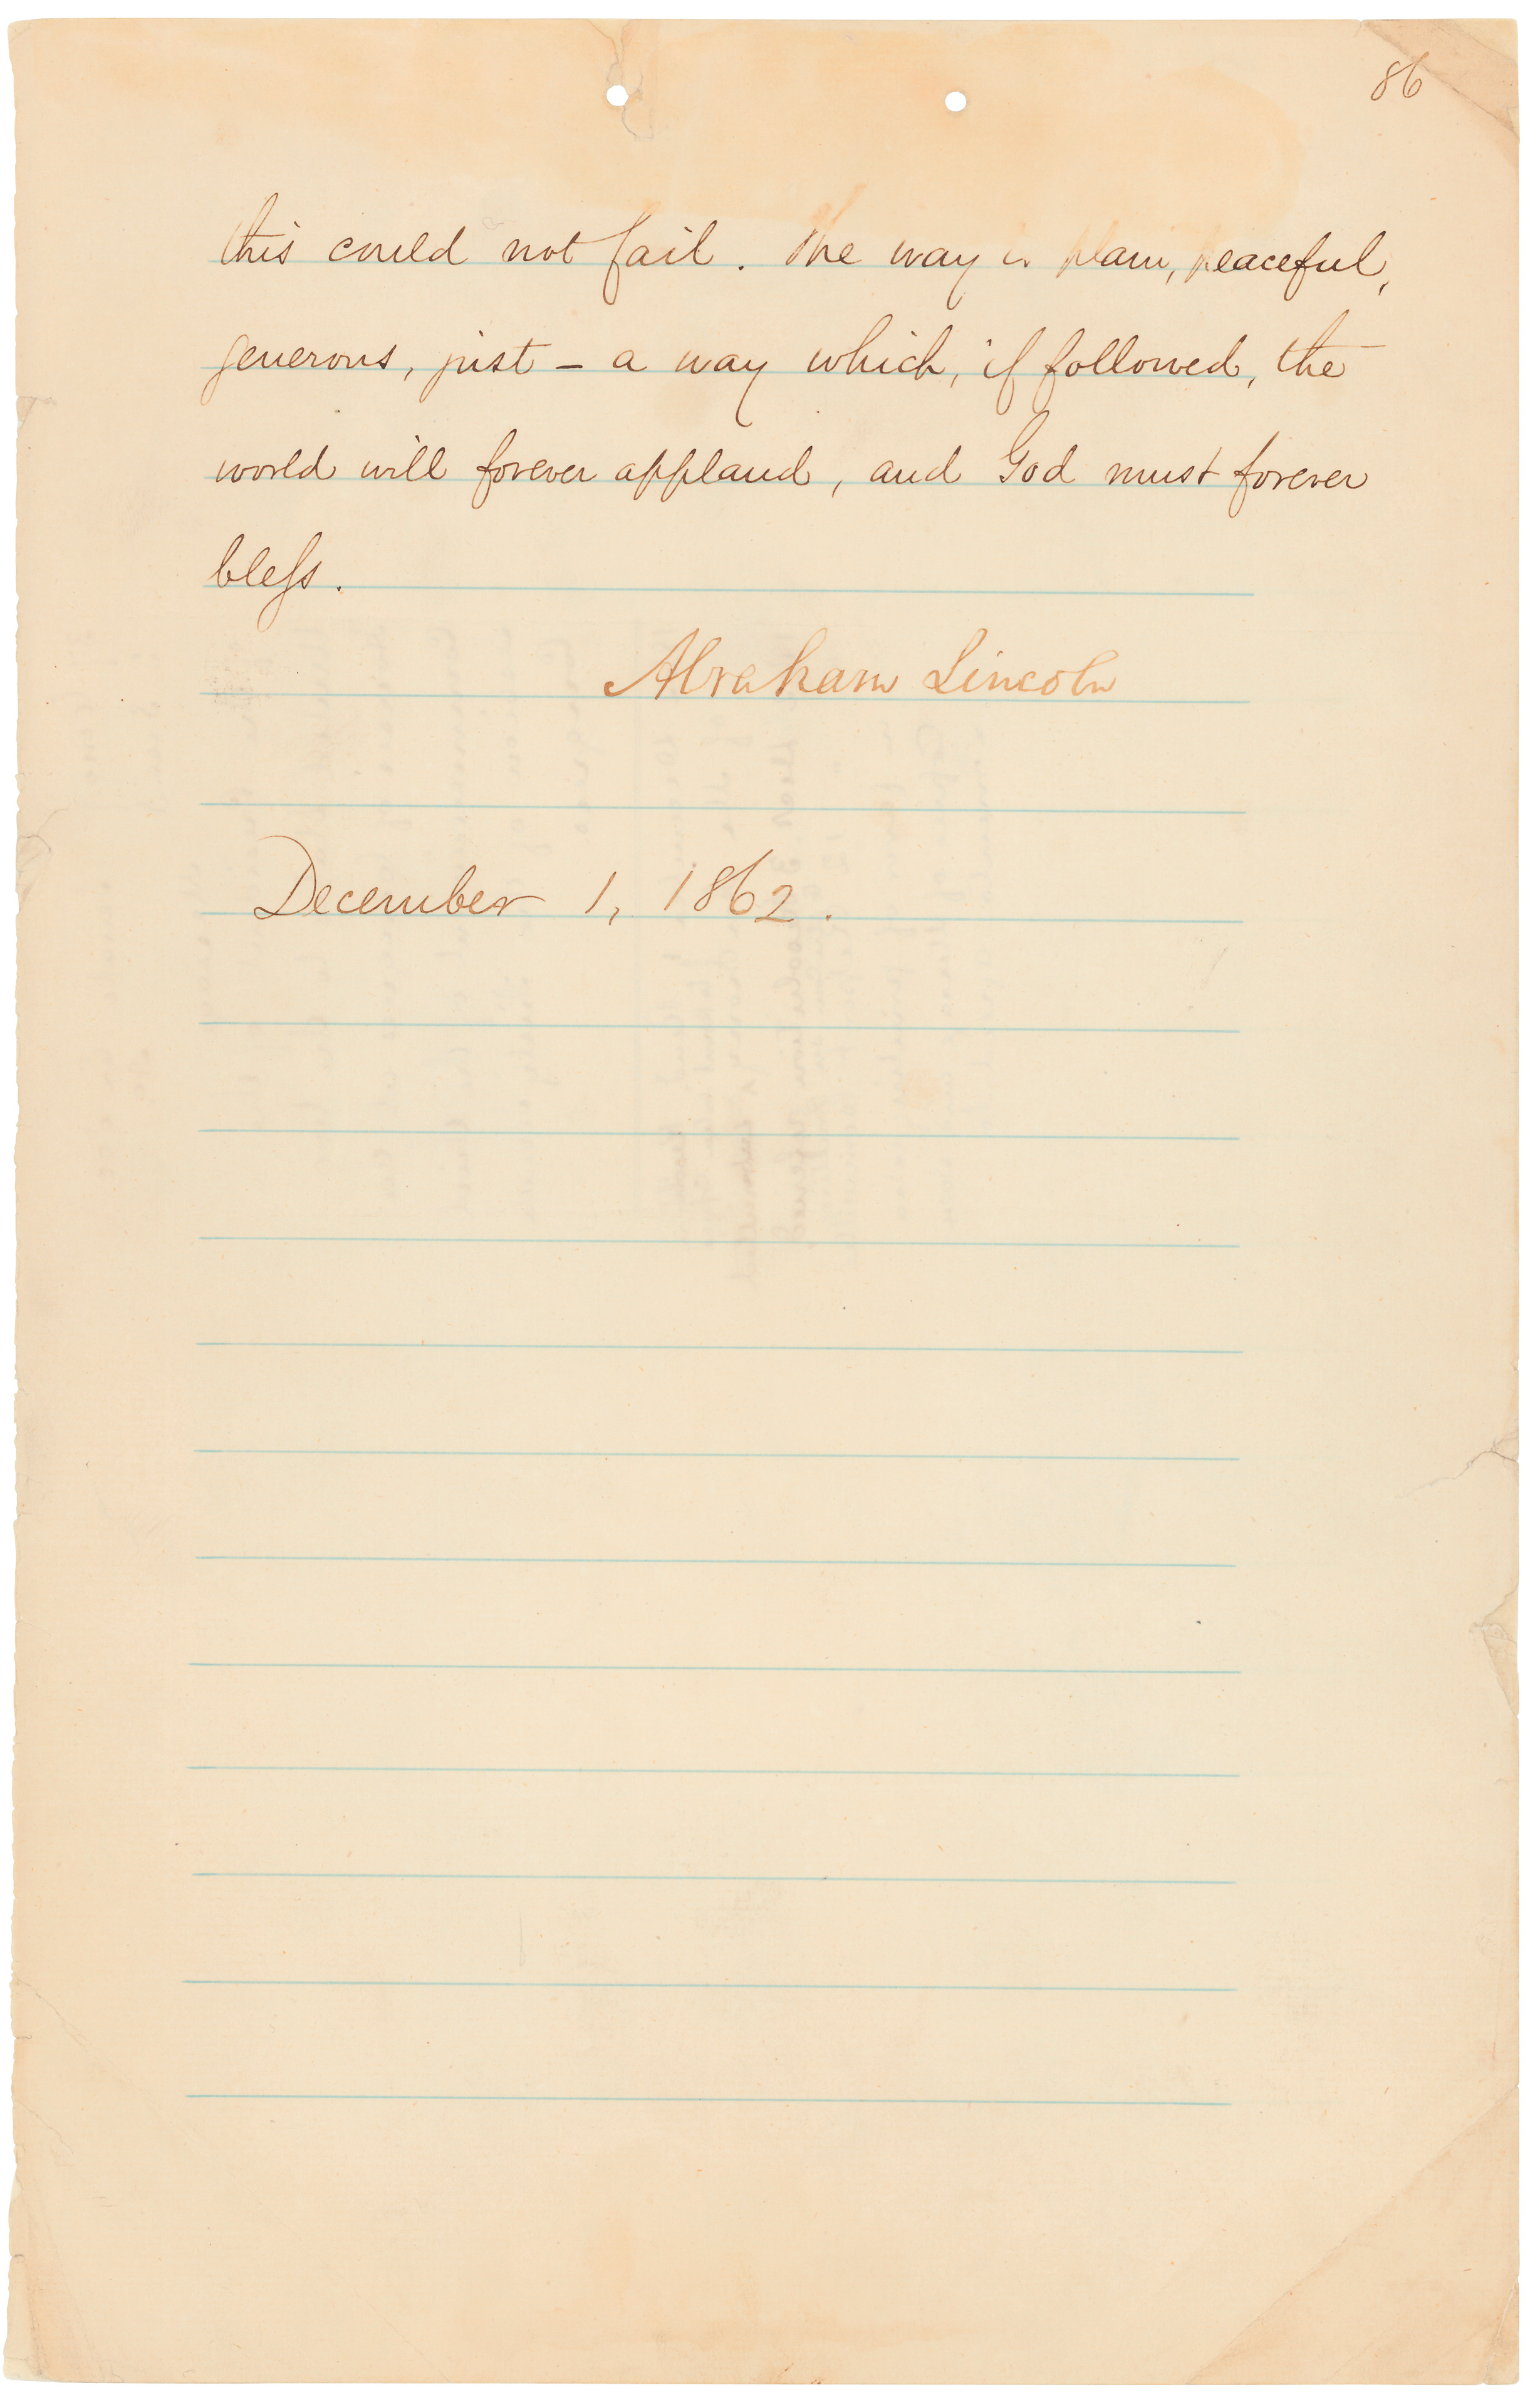 86
this could not fail. The way is plain, peaceful,
generous, just – a way which, if followed, the
world will forever applaud, and God must forever
bleſs.
Abraham Lincoln
December 1, 1862.